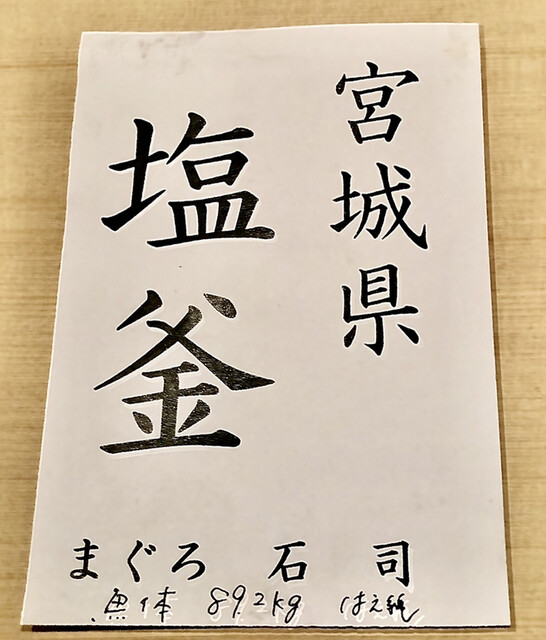 宮城県
塩釜
まぐろ 石司
魚体 89.2kg はえ縄